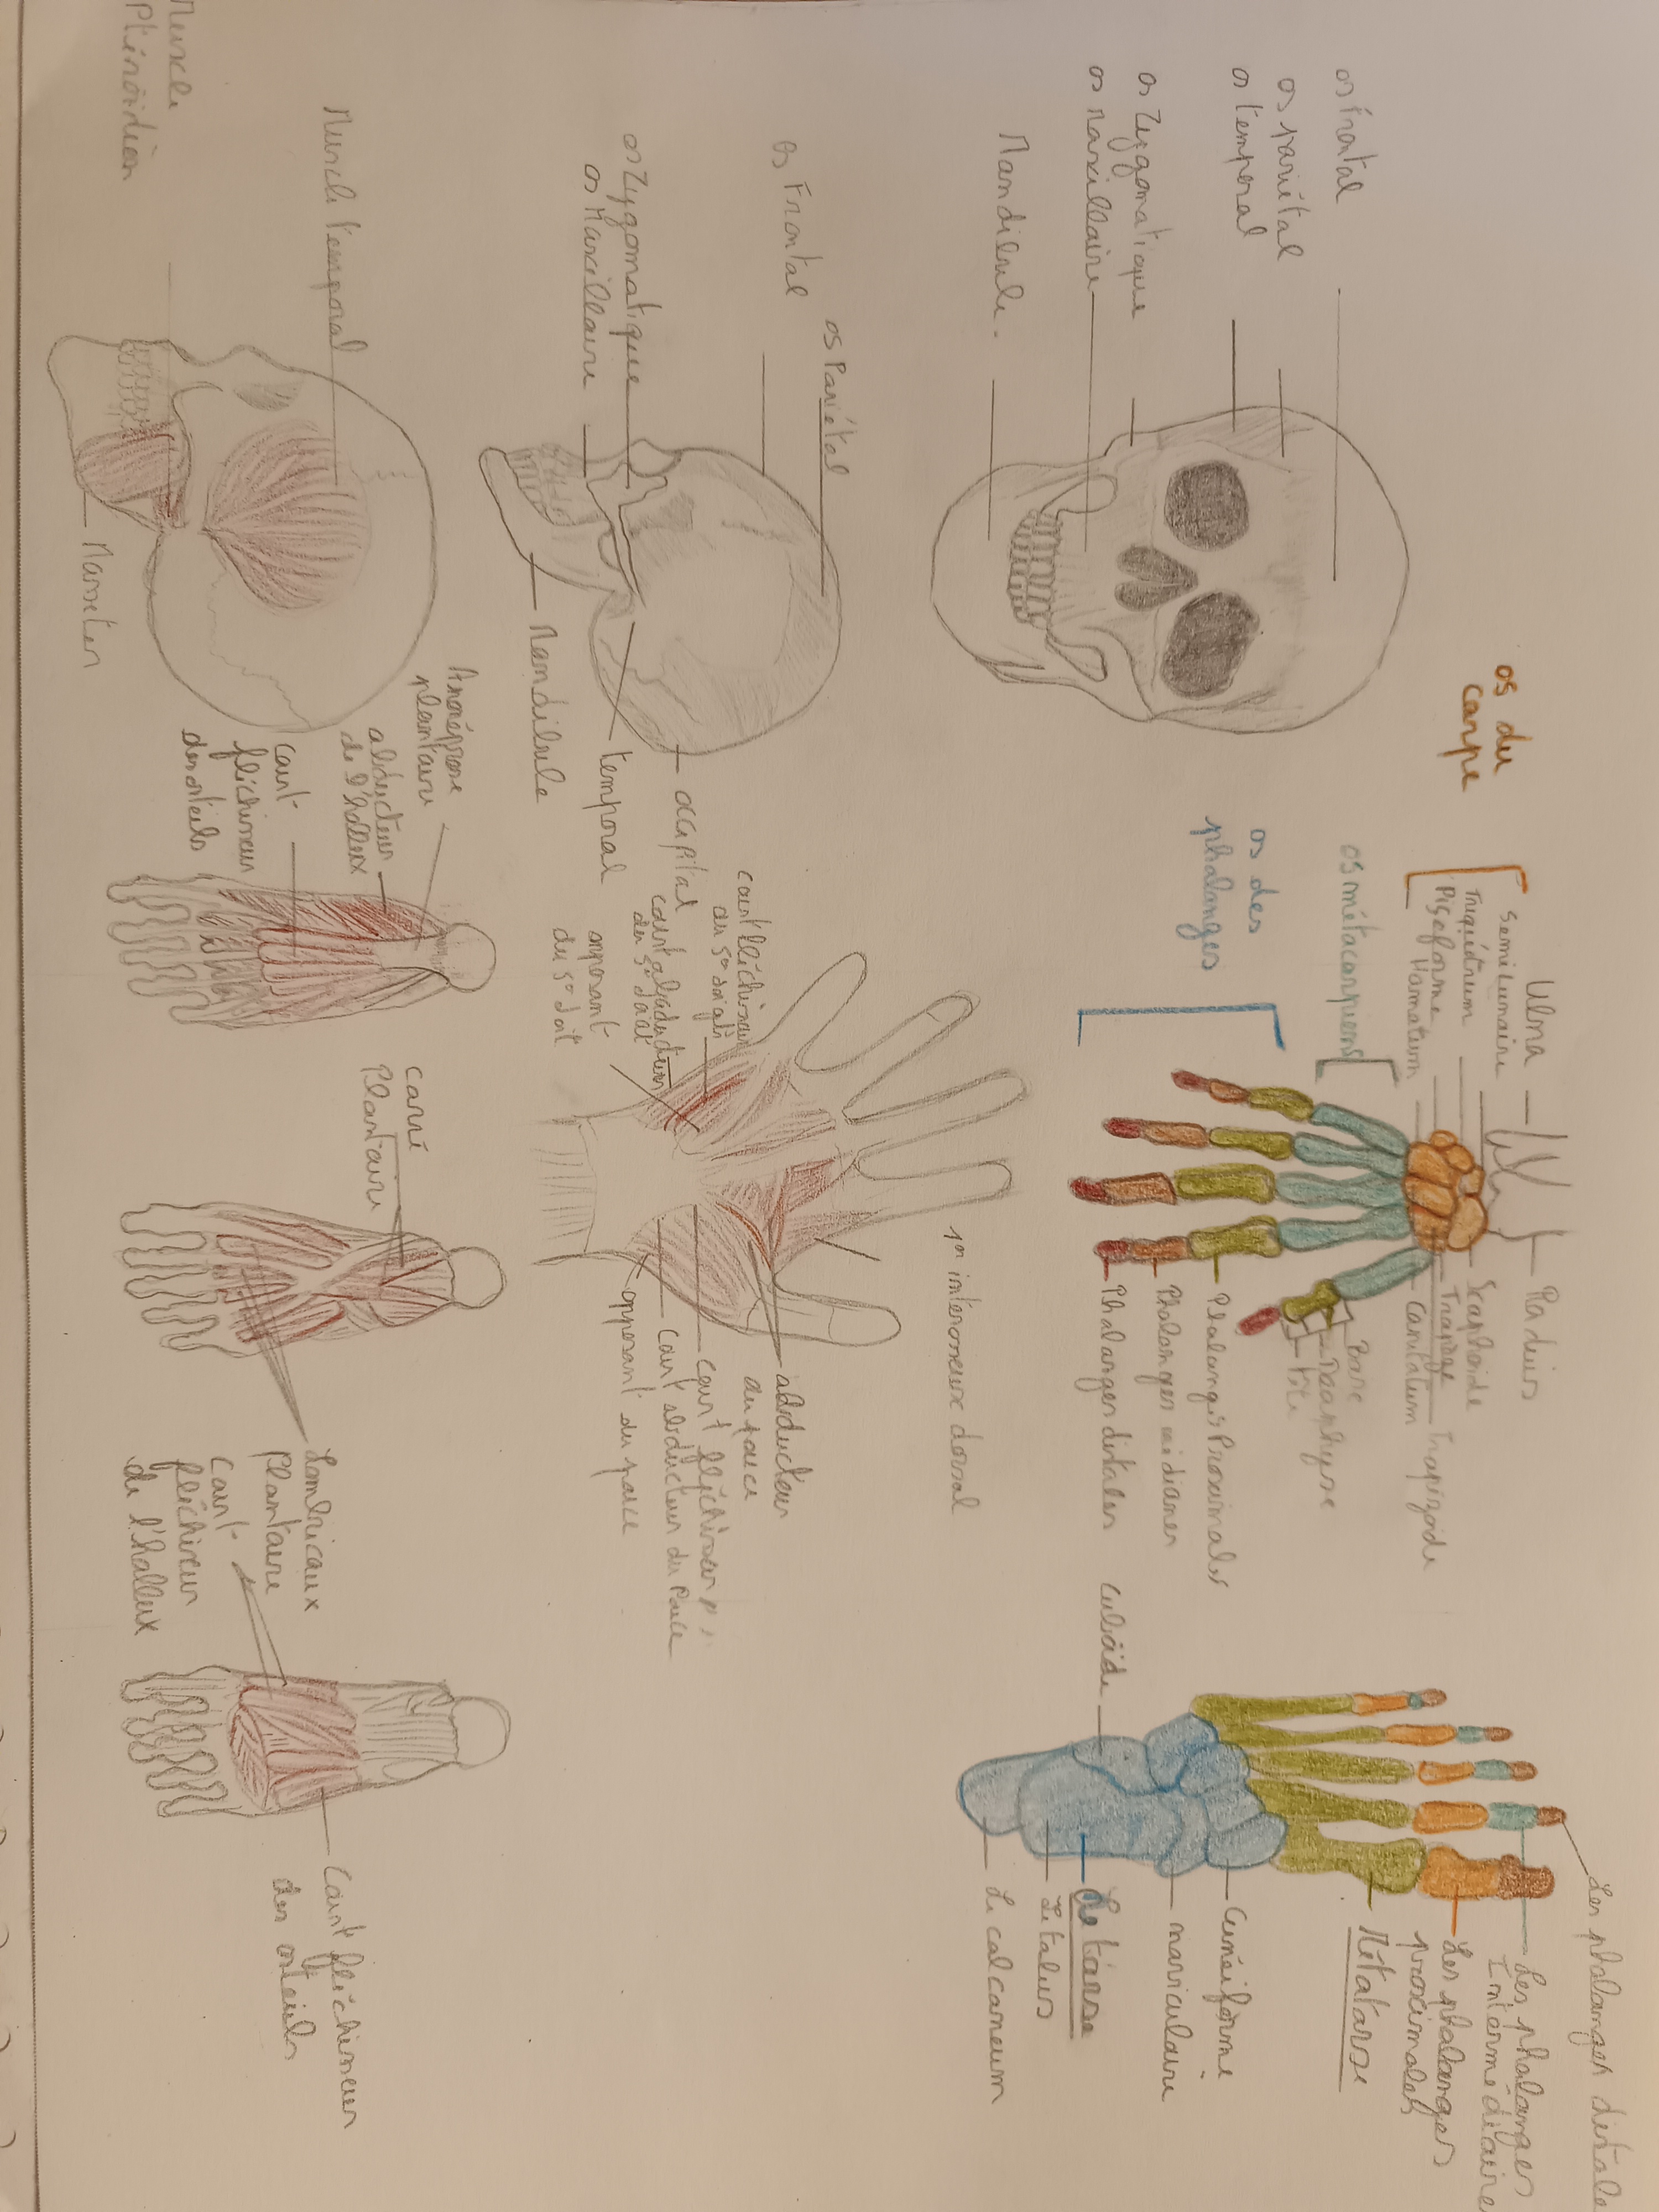 os frontal
os pariétal
os temporal
os Zygomatique
os Maxillaire
Mandibule.
os du
carpe
Ulna
Radius
semi lunaire
Triquétrum
Pisiforme
Hamatum
Scaphoïde
Trapèze
Trapézoïde
Capitatum
os métacarpiens
Base
Diaphyse
os des
phalanges
Phalanges Proximales
Phalanges médianes
Phalanges distales
Les phalanges distale
Les phalanges
Intermédiaire
Les phalanges
proximales
Métatarse
Cunéiforme
naviculaire
Le tarse
Le talus
Le calcaneum
Cuboïde
os Pariétal
os Frontal
os Zygomatique
os Maxillaire
occipital
temporal
Mandibule
1er interosseux dorsal
court fléchisseur
du 5e doigt
court abducteur
du 5e doigt
opposant
du 5e doit
adducteur
du pouce
court fléchisseur
court abducteur du Pouce
opposant du pouce
Muscle temporal
Muscle
Ptérioïdien
Masseter
Aponévrose
plantaire
abducteur
de l'hallux
court
fléchisseur
des orteils
carré
Plantaire
Lombricaux
Plantaire
court
fléchisseur
de l'hallux
Court fléchisseur
des orteils